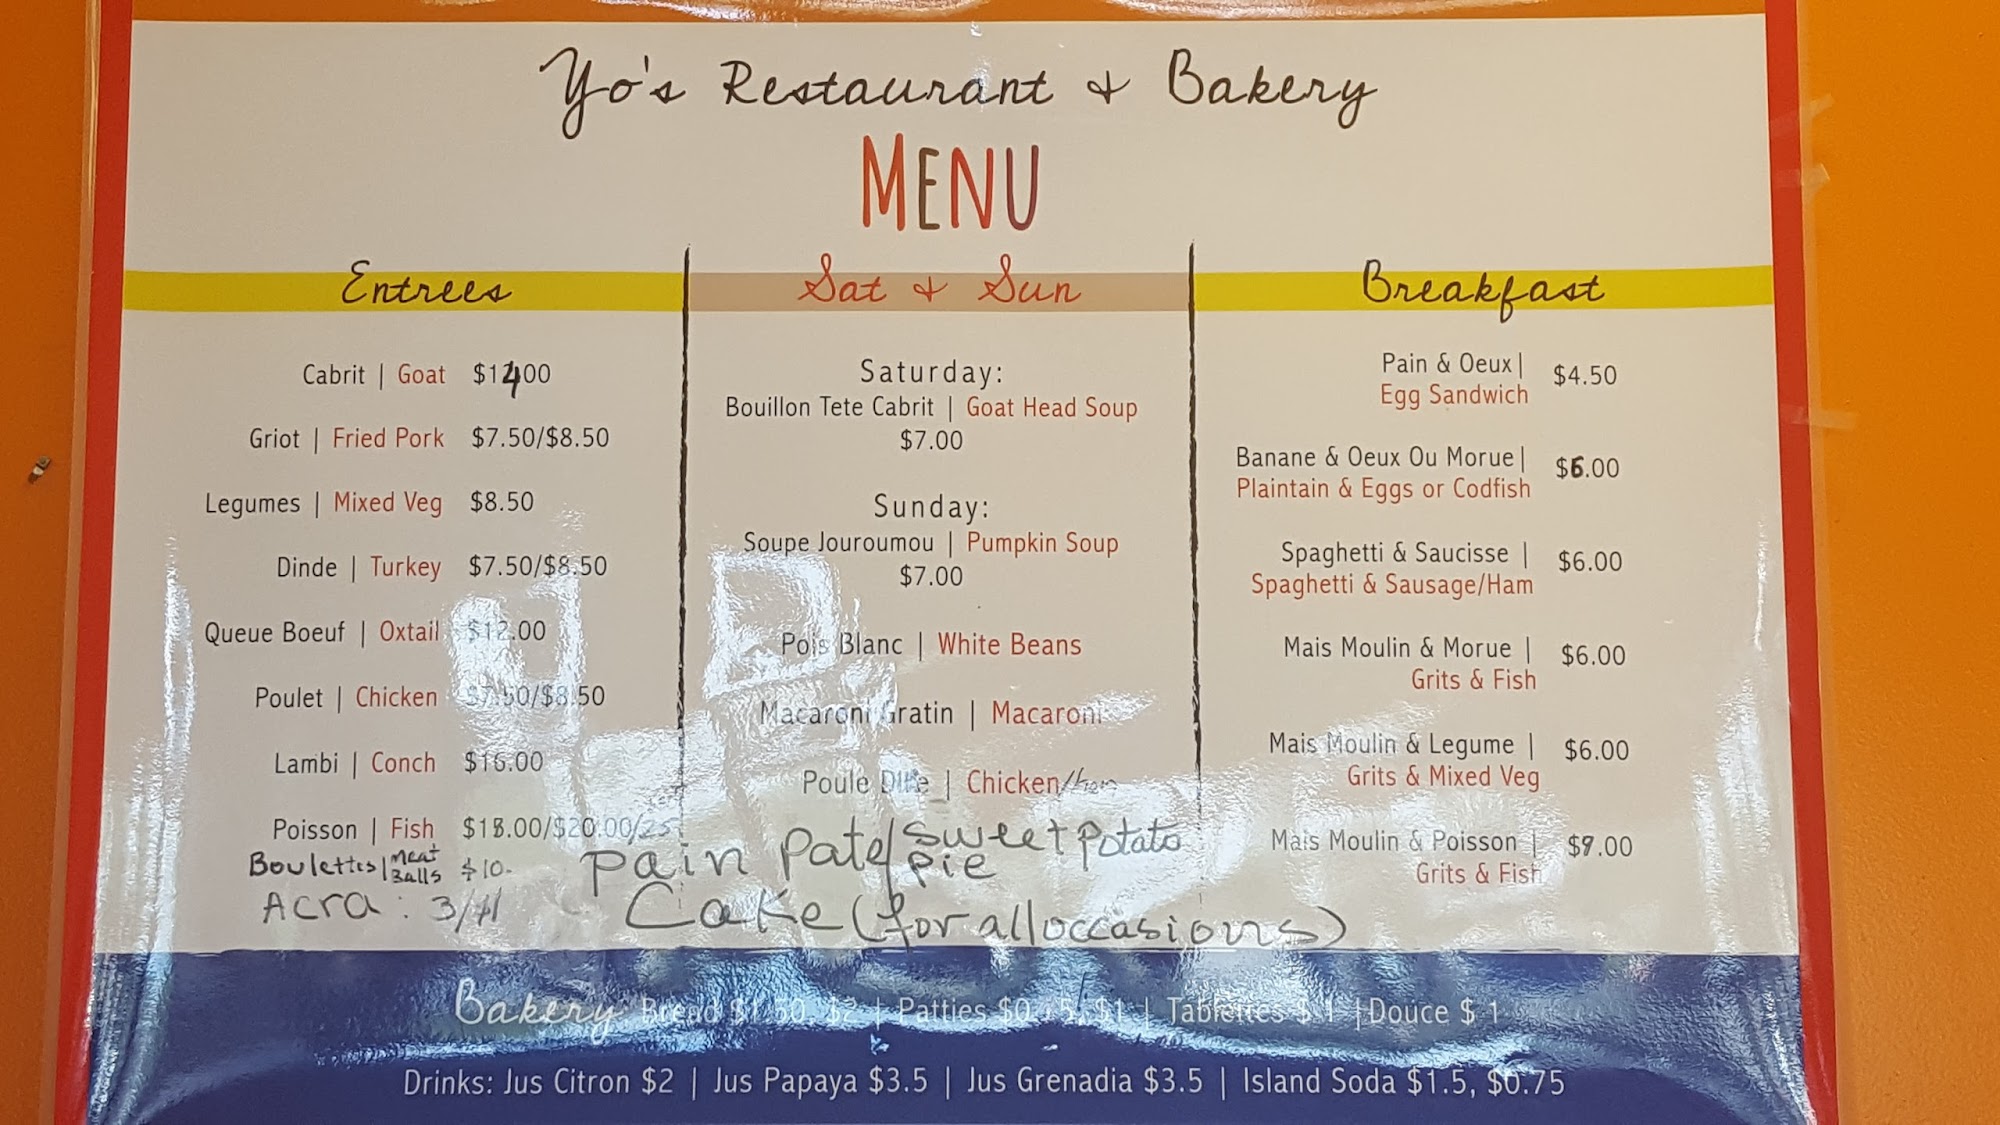 Yo's Restaurant & Bakery
MENU
Entrees
Cabrit | Goat $14.00
Griot | Fried Pork $7.50/$8.50
Legumes | Mixed Veg $8.50
Dinde | Turkey $7.50/$8.50
Queue Boeuf | Oxtail $12.00
Poulet | Chicken $7.50/$8.50
Lambi | Conch $16.00
Poisson | Fish $18.00/$20.00/25
Boulettes | Meat Balls $10-
Acra: 3/$1
Sat & Sun
Saturday:
Bouillon Tete Cabrit | Goat Head Soup
$7.00
Sunday:
Soupe Jouroumou | Pumpkin Soup
$7.00
Pois Blanc | White Beans
Macaroni Gratin | Macaroni
Poule | Chicken/hen
Pain Pate/Sweet Potato
Pie
Cake (for all occasions)
Breakfast
Pain & Oeux|
Egg Sandwich $4.50
Banane & Oeux Ou Morue|
Plaintain & Eggs or Codfish $6.00
Spaghetti & Saucisse |
Spaghetti & Sausage/Ham $6.00
Mais Moulin & Morue |
Grits & Fish $6.00
Mais Moulin & Legume |
Grits & Mixed Veg $6.00
Mais Moulin & Poisson |
Grits & Fish $9.00
Bakery: Bread $1.50, $2 | Patties $0.75, $1 | Tablettes $ 1 |Douce $ 1
Drinks: Jus Citron $2 | Jus Papaya $3.5 | Jus Grenadia $3.5 | Island Soda $1.5, $0.75